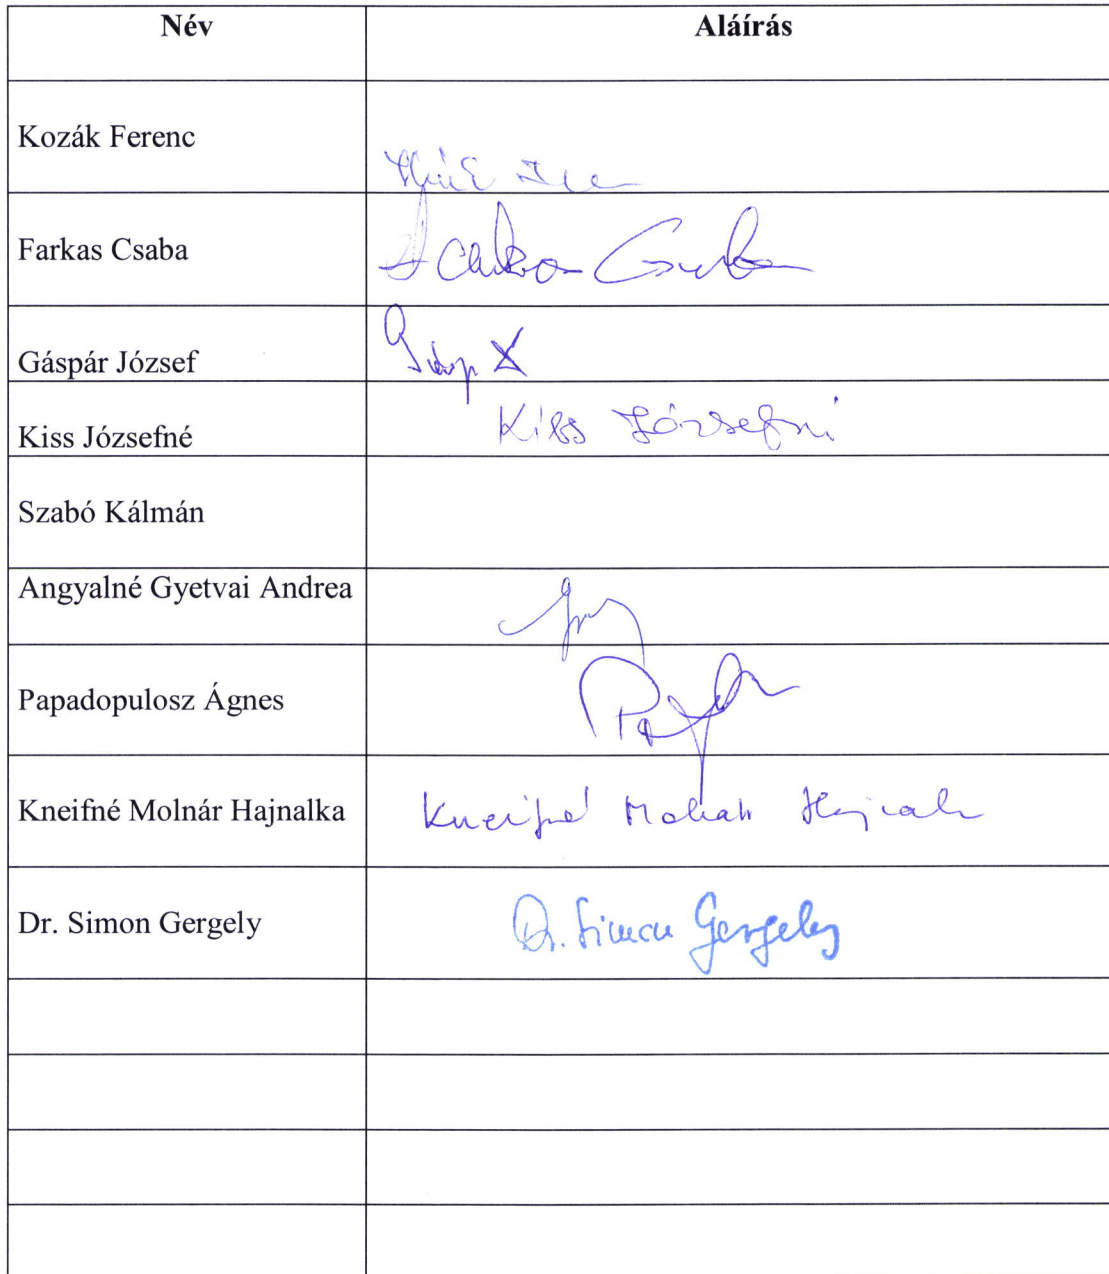 Név Aláírás
Kozák Ferenc
Farkas Csaba
Gáspár József
Kiss Józsefné Kiss Józsefné
Szabó Kálmán
Angyalné Gyetvai Andrea
Papadopulosz Ágnes
Kneifné Molnár Hajnalka Kneifné Molnár
Dr. Simon Gergely Dr. Simon Gergely